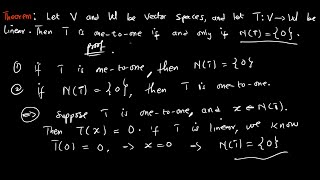 Theorem: Let V and W be vector spaces, and let T: V → W be
linear. Then T is one-to-one if and only if N(T) = {0}.
proof.
① if T is one-to-one, then N(T) = {0}
② if N(T) = {0}, then T is one-to-one.
⇒) Suppose T is one-to-one, and x ∈ N(T).
Then T(x) = 0. if T is linear, we know
T(0) = 0, → x = 0 → N(T) = {0}